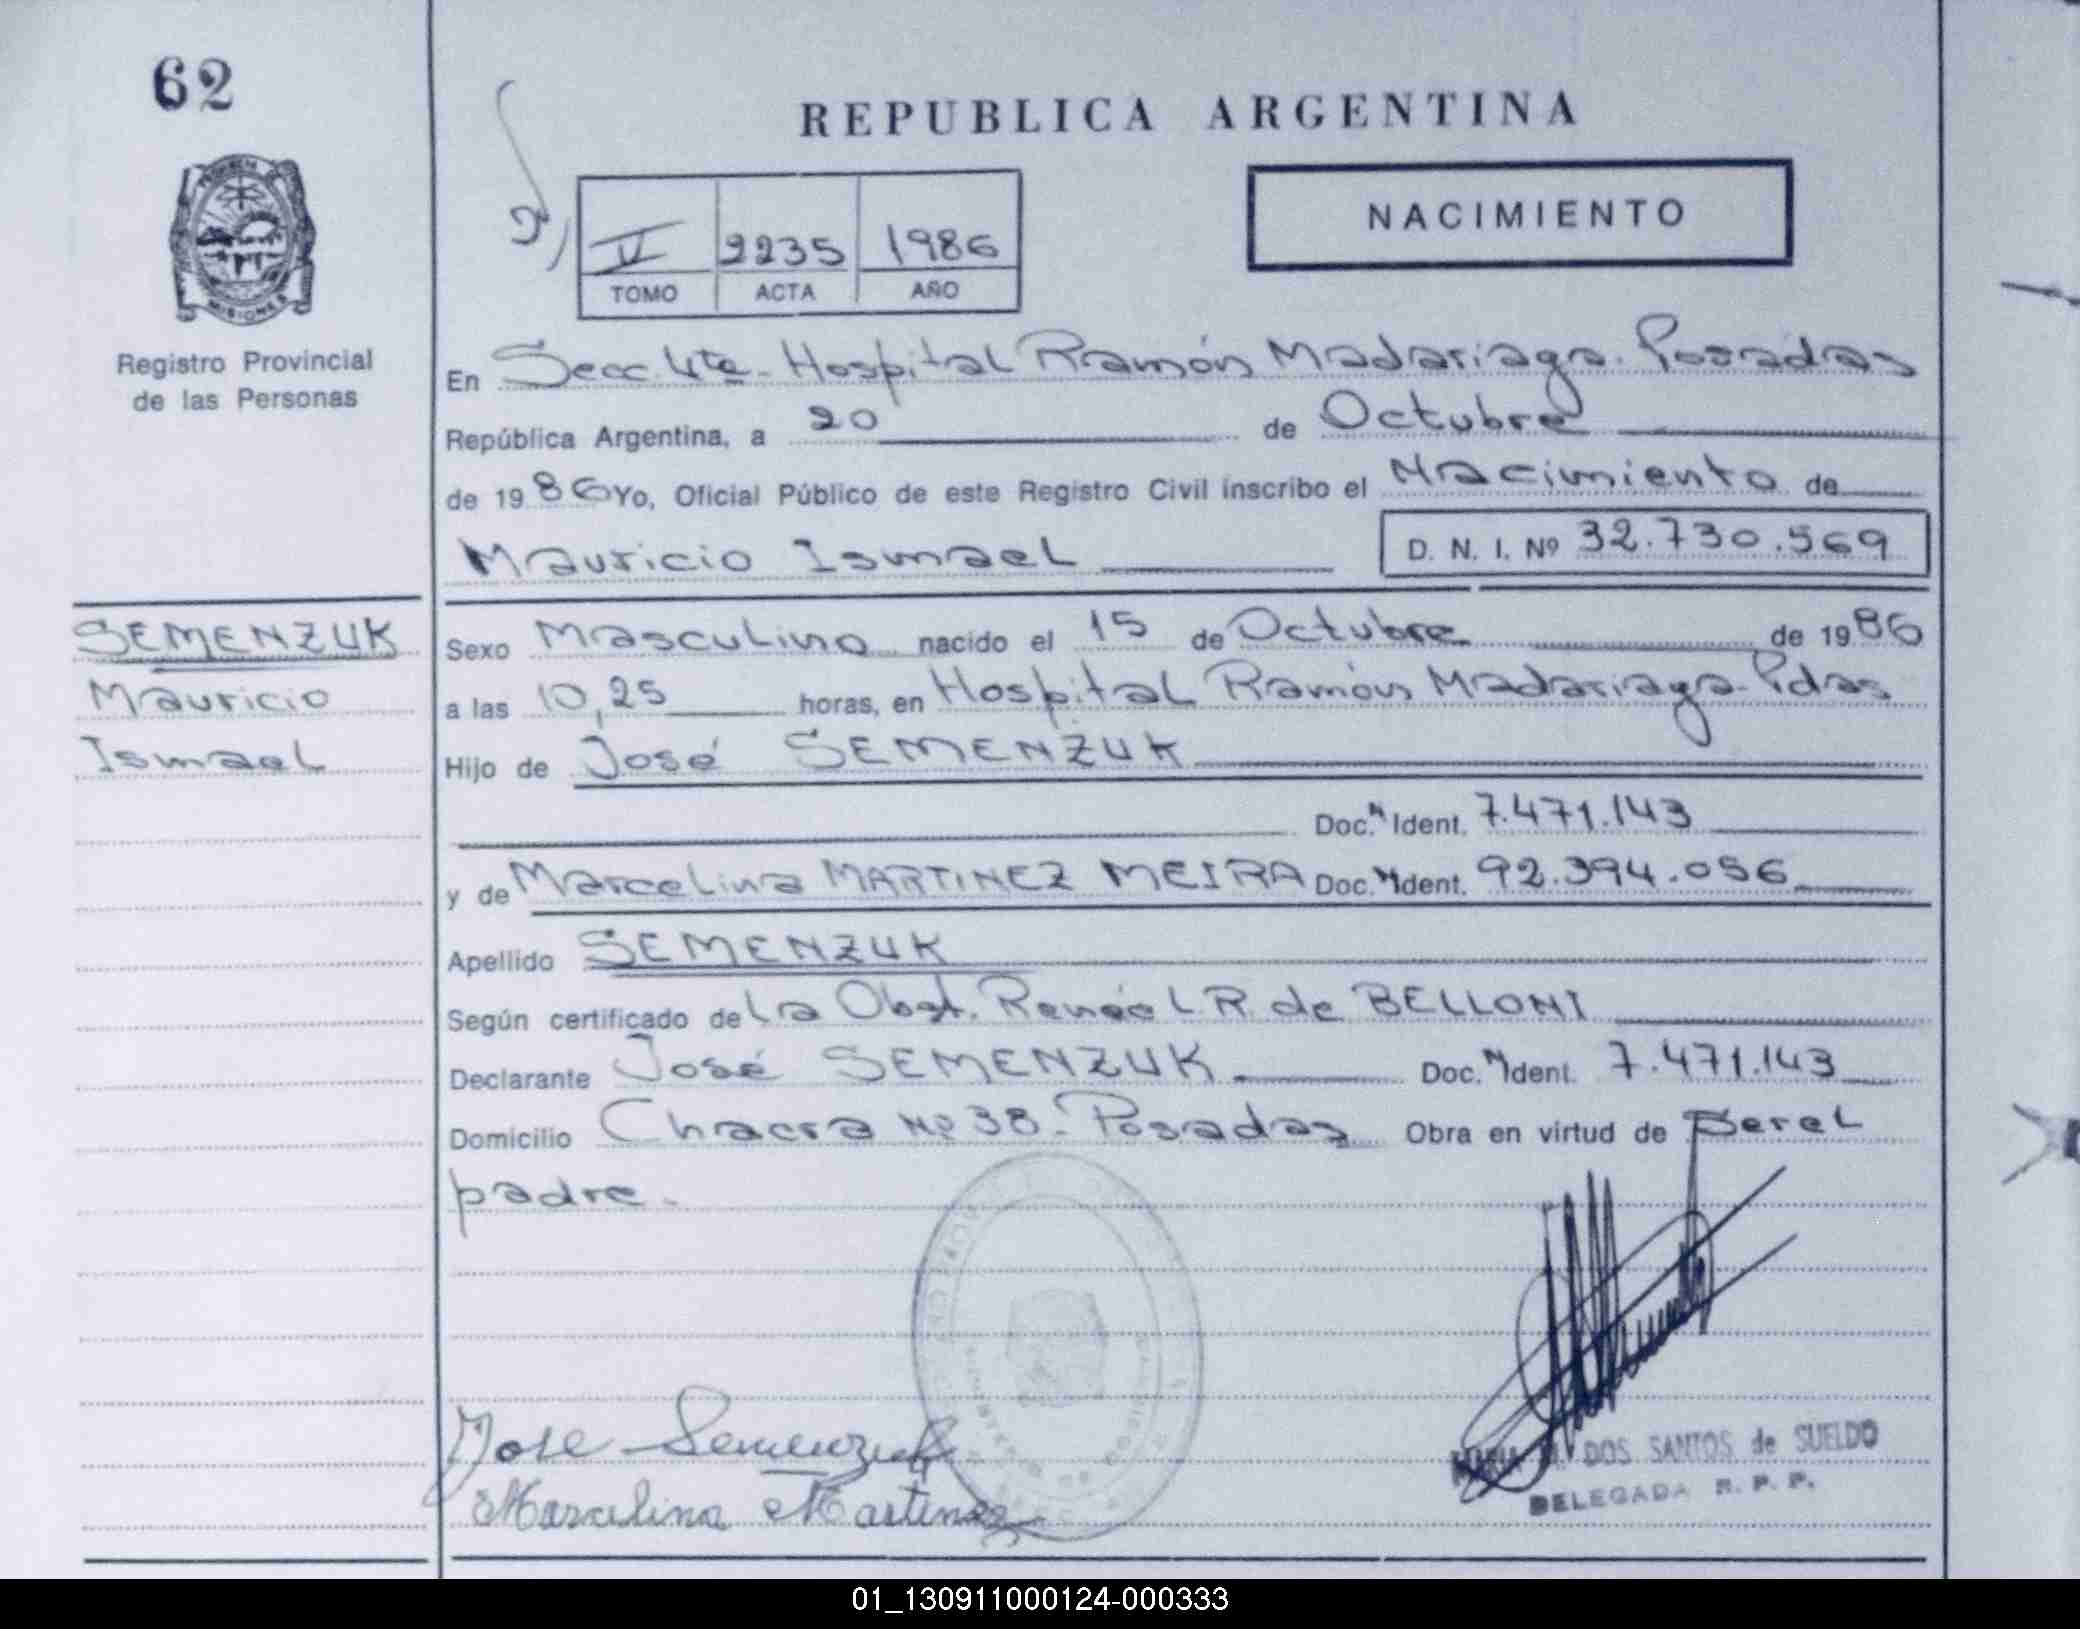 62
REPUBLICA ARGENTINA
NACIMIENTO
V 2235 1986
TOMO ACTA AÑO
MISIONES
Registro Provincial
de las Personas
En Secc. 4ta. Hospital Ramón Madariaga. Posadas
República Argentina, a 20 de Octubre
de 1986 Yo, Oficial Público de este Registro Civil inscribo el Nacimiento de
Mauricio Ismael D. N. I. Nº 32.730.569
SEMENZUK
Mauricio
Ismael
Sexo Masculino nacido el 15 de Octubre de 1986
a las 10,25 horas, en Hospital Ramón Madariaga. Pdas
Hijo de José SEMENZUK
Doc. N Ident. 7.471.143
y de Marcelina MARTINEZ MEIRA Doc. N Ident. 92.394.056
Apellido SEMENZUK
Según certificado de La Obst. Renée L.R. de BELLONI
Declarante José SEMENZUK Doc. N Ident. 7.471.143
Domicilio Chacra Nº 38. Posadas Obra en virtud de Ser el
padre.
Jose Semenzuk
Marcelina Martinez
DOS SANTOS de SUELDO
DELEGADA R. P. P.
01_130911000124-000333